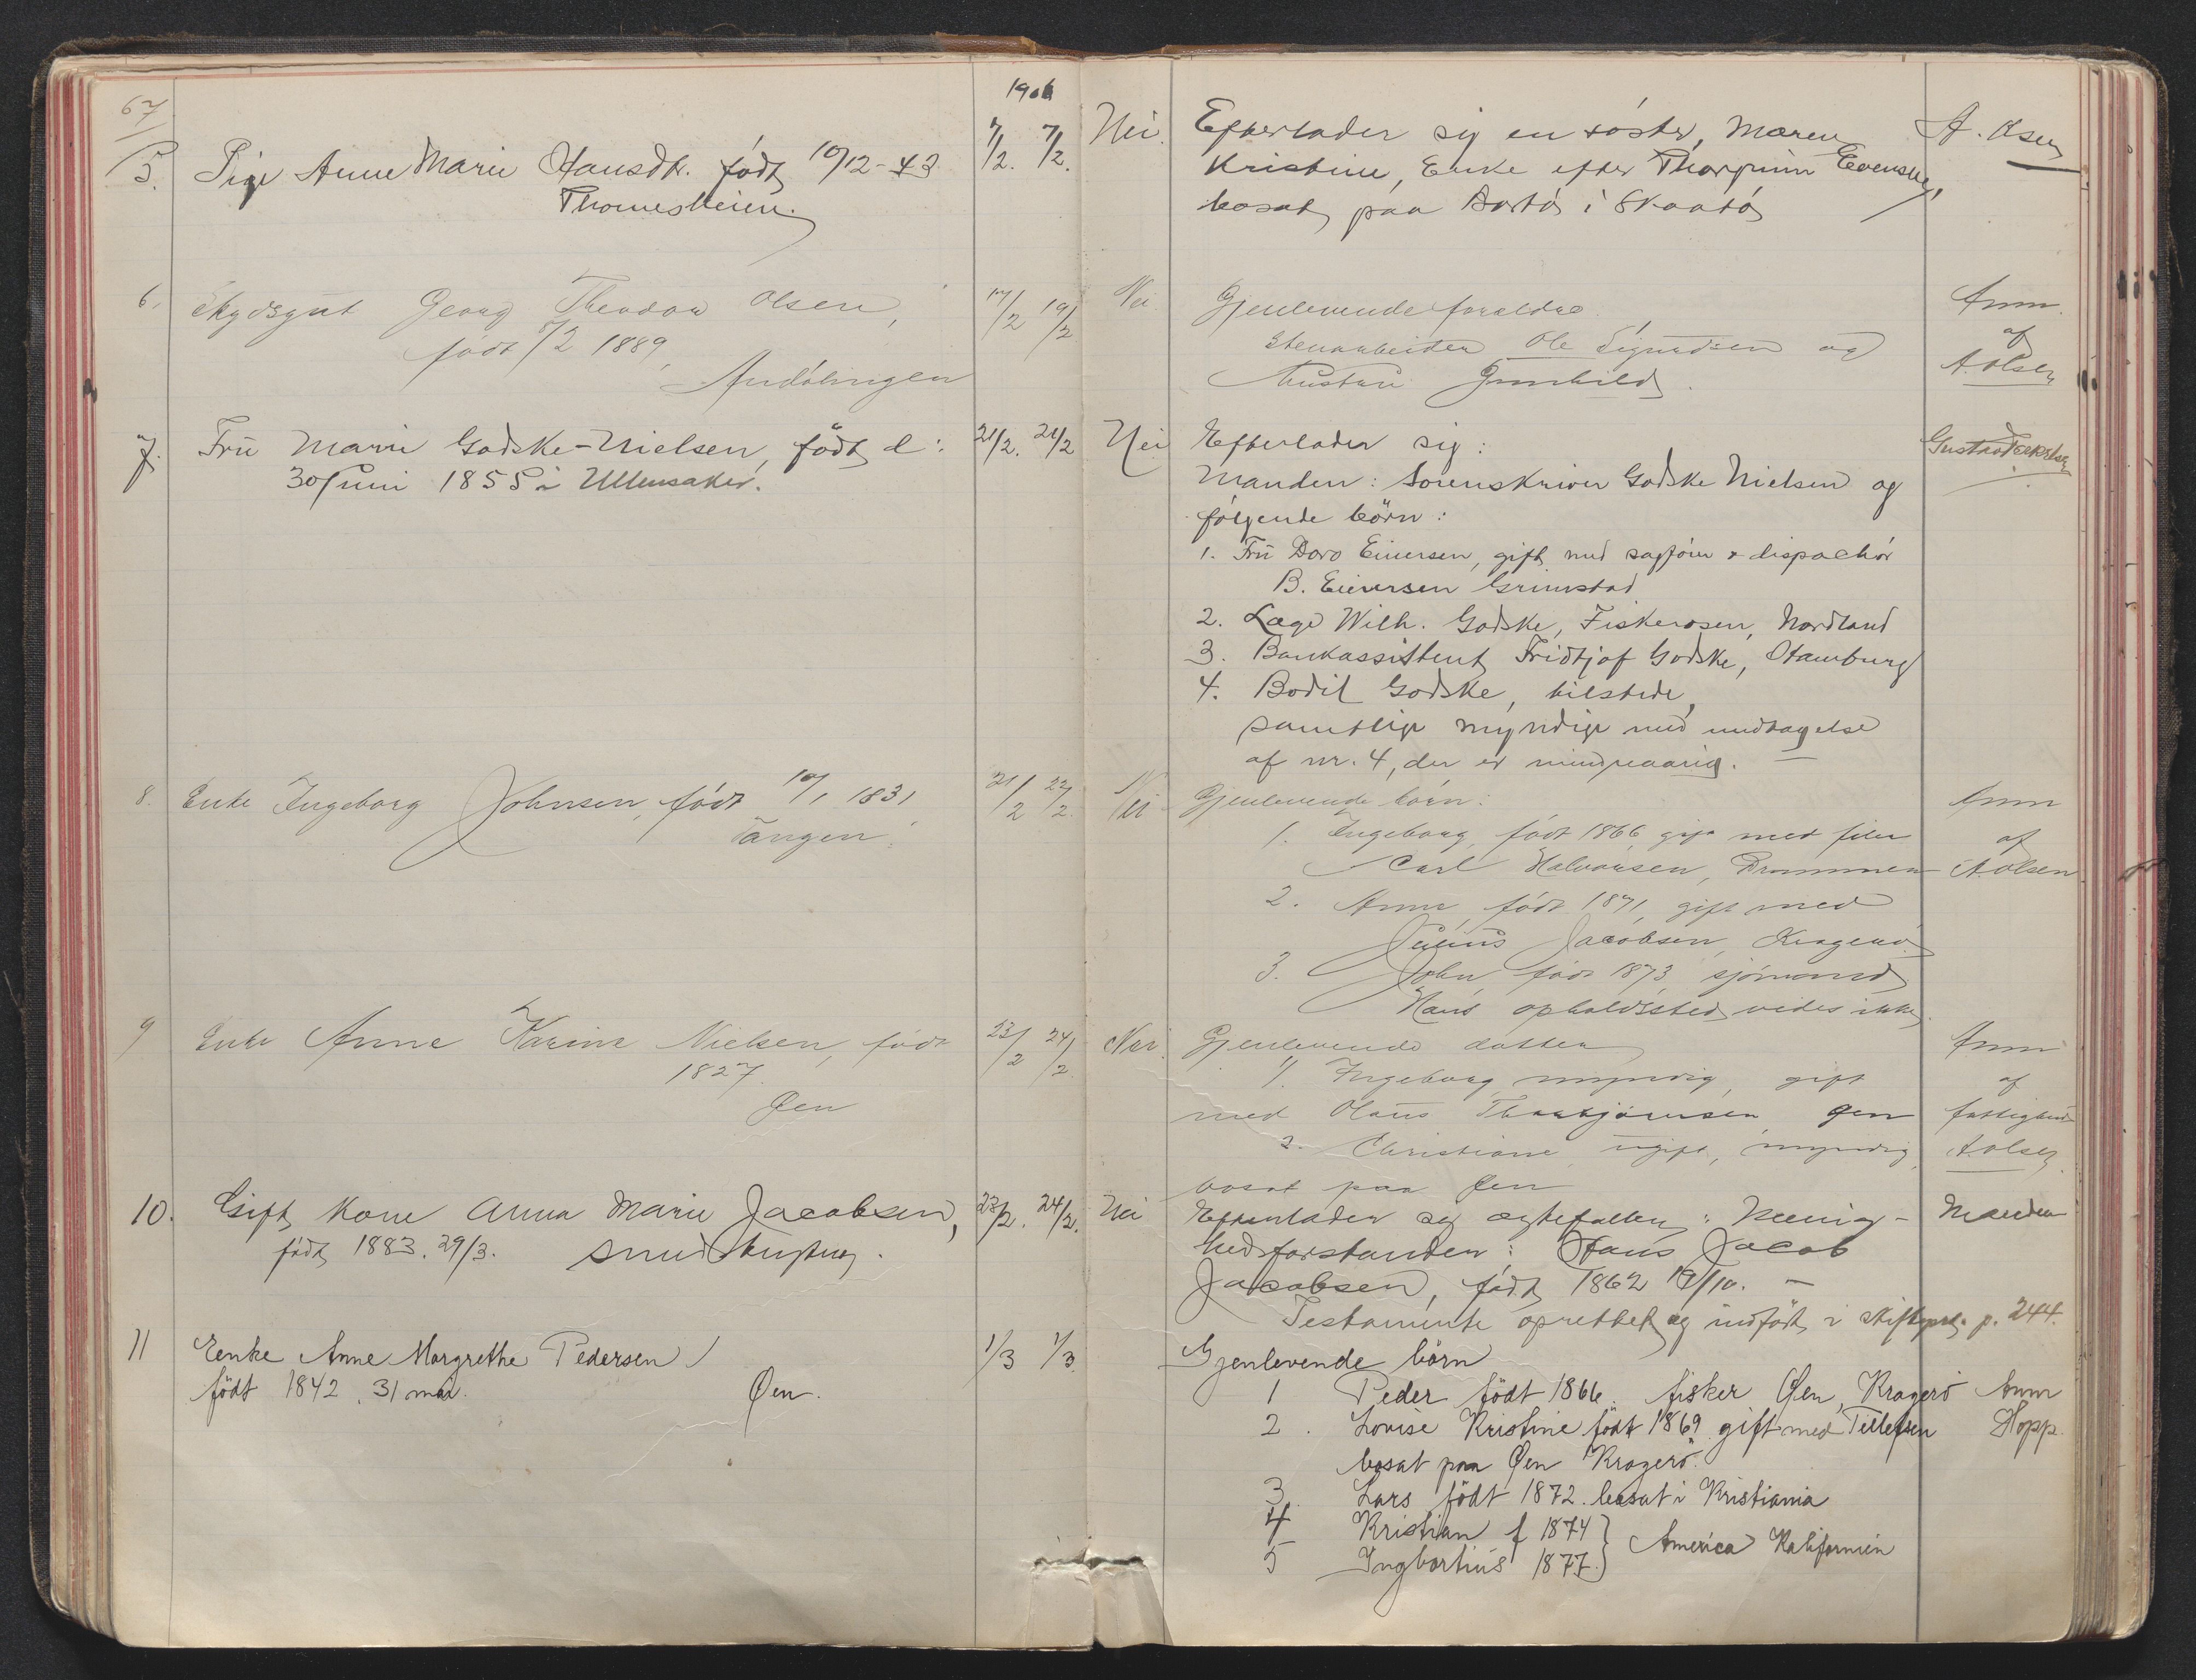 67
1906
5. Pige Anne Marie Hansdtr. född 10/12-43 7/2. 7/2. Nei. Efterlader sig en söster, Maren A. Olsen
Thomesheien. Kristine, Enke efter Thorfinn Evensen,
bosat paa i Skaatö
6. Georg Theodor Olsen, 17/2 19/2 Nei Gjenlevende forældre Anm.
født 8/2 1889, Stenarbeider Ole Sigurdsen og af
Hustru Gunhild. A. Olsen
7. Frü Marie Godske-Nielsen, född d: 21/2. 21/2 Nei Efterlader sig:
30 Juni 1855 i Ullensaker. Manden: Sorenskriver Godske Nielsen og
følgende börn:
1. Frü Doro Eiversen, gift med sagförer & dispachör
B. Eiversen Grimstad
2. Læge Wilh. Godske, Nordland
3. Bankassistent Fridtjof Godske, Hamburg
4. Bodil Godske, tilstede,
samtlige myndige med undtagelse
af nr. 4, der er mindreaarig. —
8. Enke Ingeborg Johnsen, födt 10/1 1831 21/2 22/2. Nei Gjenlevende börn: Anm
Tangen. 1. Ingeborg, födt 1866 gift med af
Carl Halvorsen, Drammen A. Olsen
2. Anna, födt 1871, gift med
Julius Jacobsen, Kragerö.
3. John, födt 1873, sjömand
Hans opholdssted vides ikke
9 Enke Anne Karine Nielsen, födt 23/2 24/2. Nei. Gjenlevende datter Anm
1827. 1. Ingeborg, myndig, gift af
Øen med Olaus Thorbjörnsen Øen
2. Christiane ugift, myndig, A. Olsen
bosat paa Øen
10. Gift Kone Anna Marie Jacobsen, 23/2. 24/2. Nei Efterlader sig ægtefællen: Menig- Manden
född 1883. 29/3. hedsforstander: Hans Jacob
Jacobsen, född 1862 19/10. —
Testamente oprettet og indført i p. 244.
11 Eenke Anne Margrethe Pedersen 1/3 1/3 Gjenlevende börn
födt 1842, 31 mai. Øen. 1 Peder födt 1866. fisker Øen, Kragerö Anm
2. Lovise Kristine födt 1869 gift med Tellefsen Hopp.
bosat paa Øen Kragerö.
3. Lars födt 1872. bosat i Kristiania
4 Kristian f 1874 } America Kalifornien
5 Ingbartius 1877.